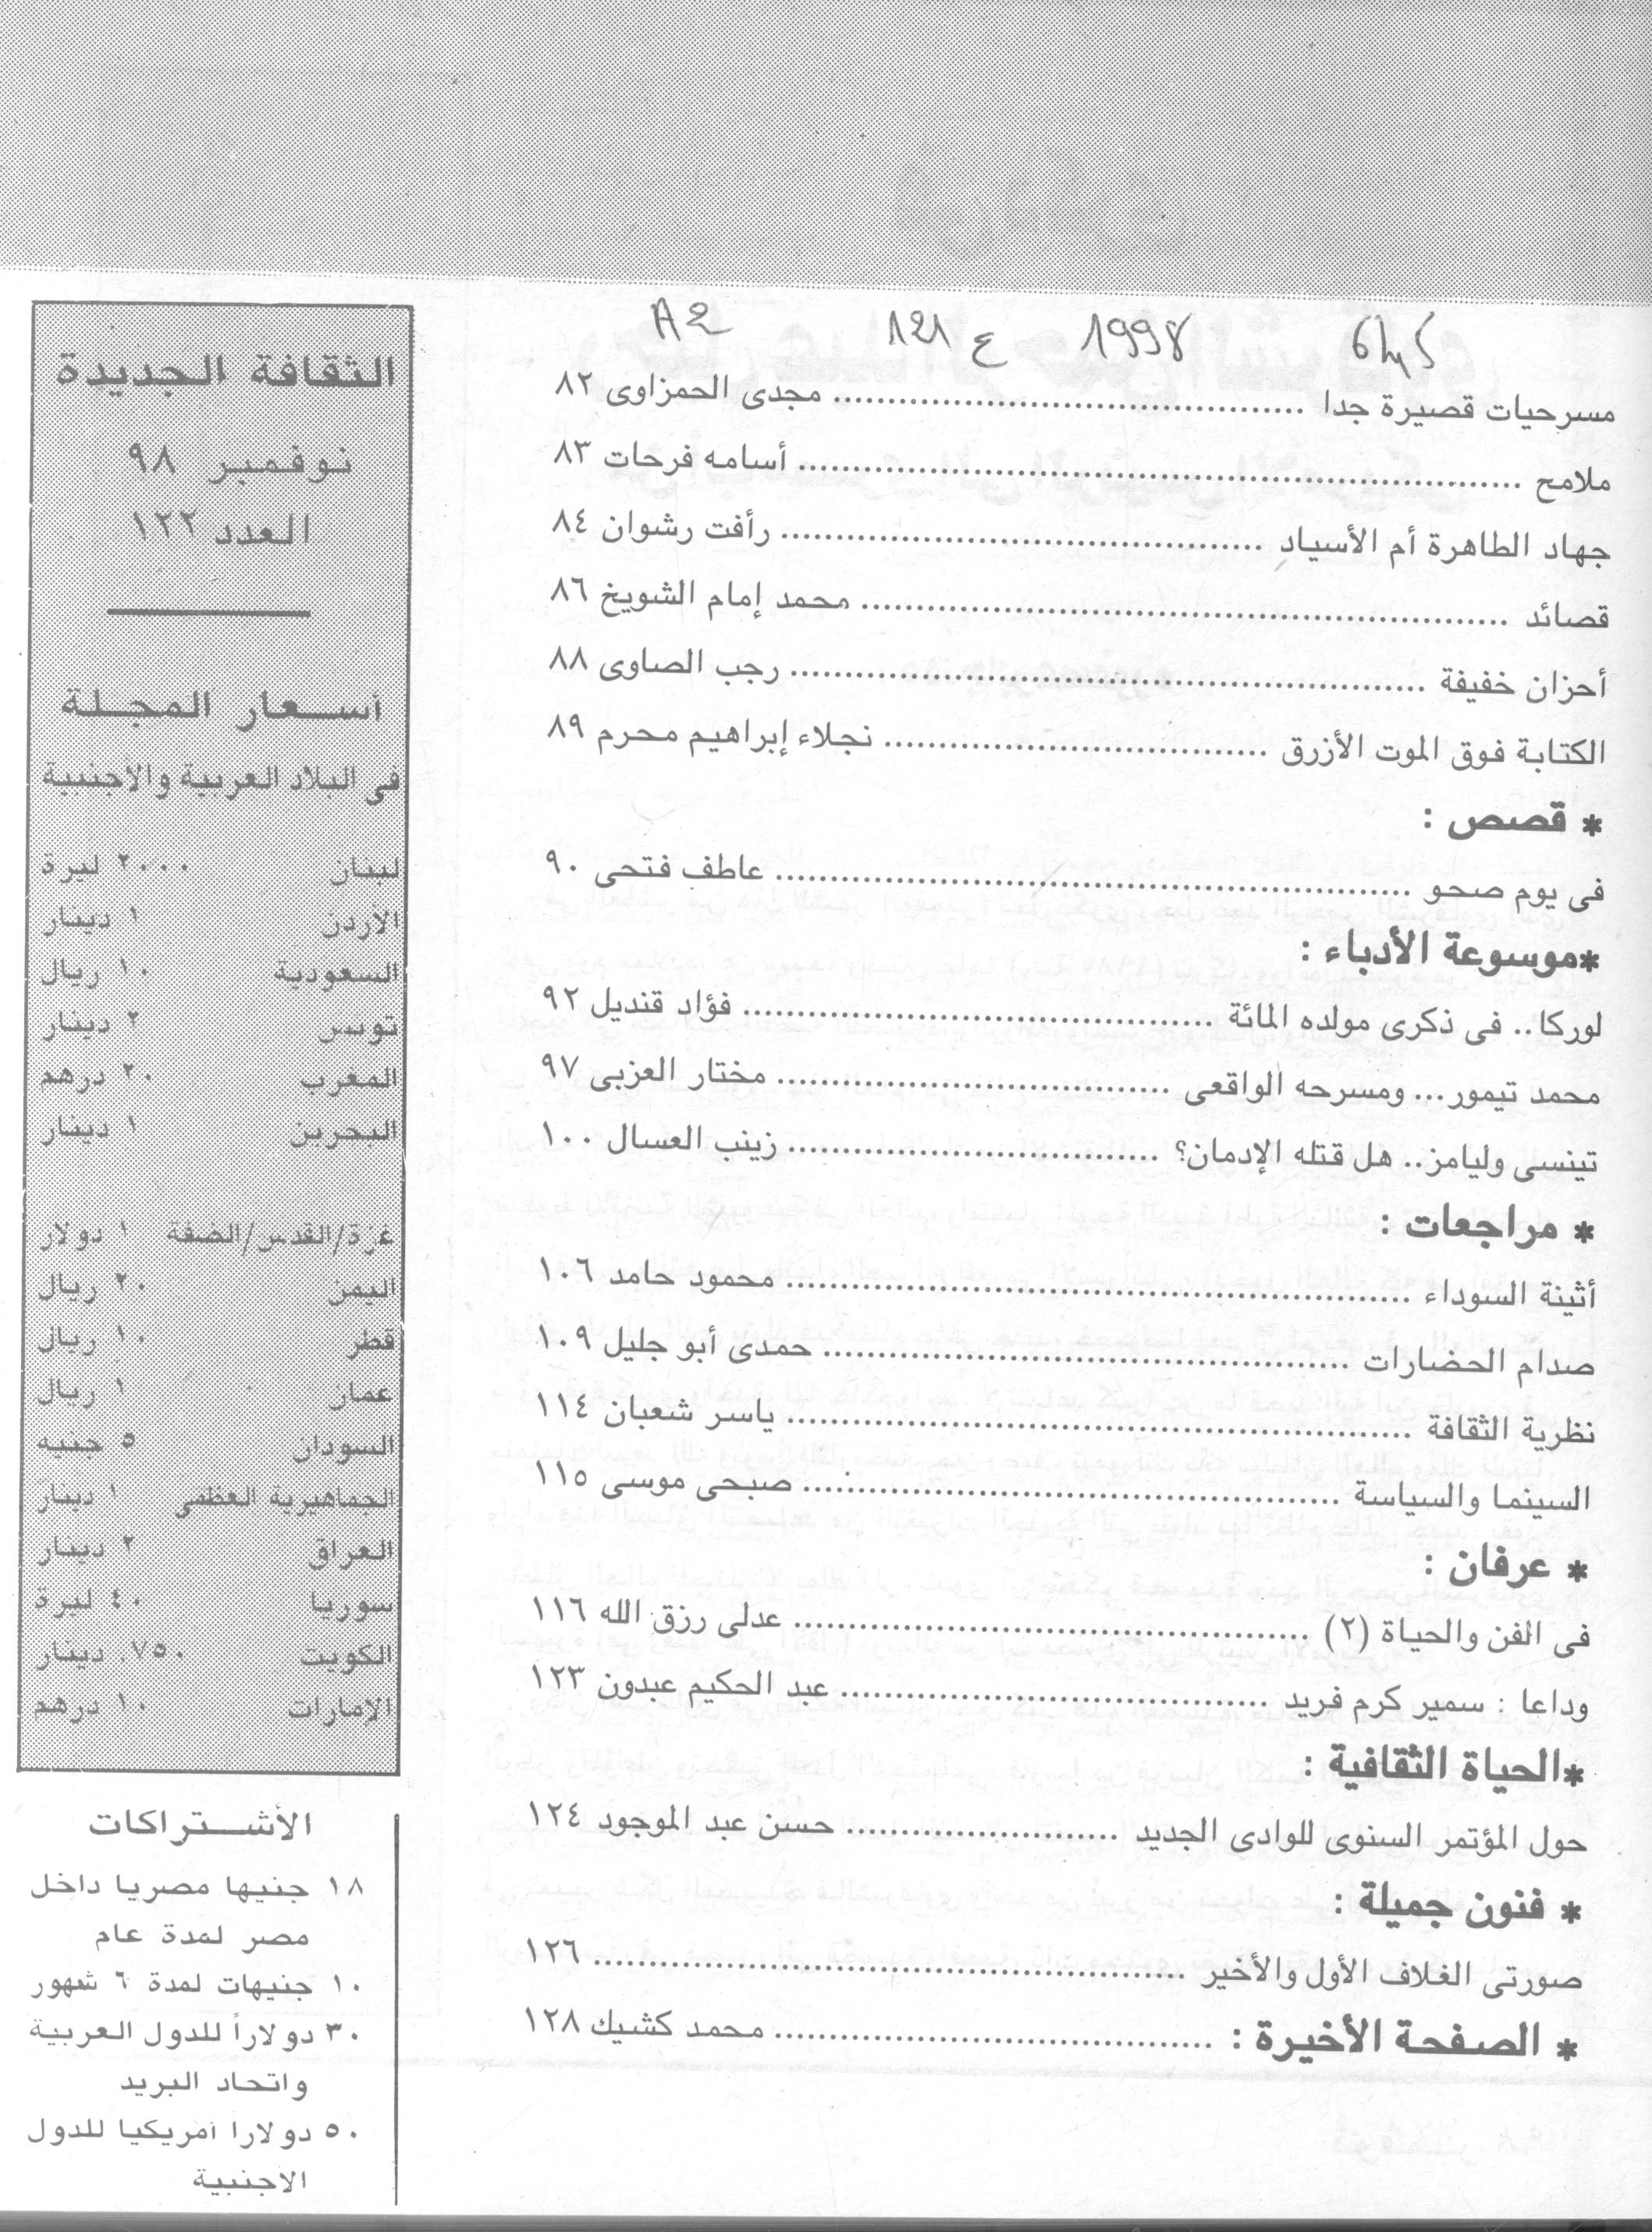 1998 ع 121 A2
مسرحيات قصيرة جدا ........ مجدى الحمزاوى ٨٢
ملامح ........ أسامه فرحات ٨٣
جهاد الطاهرة أم الأسياد ........ رأفت رشوان ٨٤
قصائد ........ محمد إمام الشويخ ٨٦
أحزان خفيفة ........ رجب الصاوى ٨٨
الكتابة فوق الموت الأزرق ........ نجلاء إبراهيم محرم ٨٩
* قصص :
فى يوم صحو ........ عاطف فتحى ٩٠
*موسوعة الأدباء :
لوركا.. فى ذكرى مولده المائة ........ فؤاد قنديل ٩٢
محمد تيمور... ومسرحه الواقعى ........ مختار العزبى ٩٧
تينسى وليامز.. هل قتله الإدمان؟ ........ زينب العسال ١٠٠
* مراجعات :
أثينة السوداء ........ محمود حامد ١٠٦
صدام الحضارات ........ حمدى أبو جليل ١٠٩
نظرية الثقافة ........ ياسر شعبان ١١٤
السينما والسياسة ........ صبحى موسى ١١٥
* عرفان :
فى الفن والحياة (٢) ........ عدلى رزق الله ١١٦
وداعا : سمير كرم فريد ........ عبد الحكيم عبدون ١٢٣
*الحياة الثقافية :
حول المؤتمر السنوى للوادى الجديد ........ حسن عبد الموجود ١٢٤
* فنون جميلة :
صورتى الغلاف الأول والأخير ........ ١٢٦
* الصفحة الأخيرة : ........ محمد كشيك ١٢٨
الثقافة الجديدة
نوفمبر ٩٨
العدد ١٢٢
أسعار المجلة
فى البلاد العربية والاجنبية
لبنان ٢٠٠٠ ليرة
الأردن ١ دينار
السعودية ١٠ ريال
تونس ٢ دينار
المغرب ٢٠ درهم
البحرين ١ دينار
غزة/القدس/الضفة ١ دولار
اليمن ٢٠ ريال
قطر ١٠ ريال
عمان ١ ريال
السودان ٥ جنيه
الجماهيرية العظمى ١ دينار
العراق ٢ دينار
سوريا ٤٠ ليرة
الكويت ٧٥٠. دينار
الإمارات ١٠ درهم
الأشتراكات
١٨ جنيها مصريا داخل
مصر لمدة عام
١٠ جنيهات لمدة ٦ شهور
٣٠ دولاراً للدول العربية
واتحاد البريد
٥٠ دولارا امريكيا للدول
الاجنبية